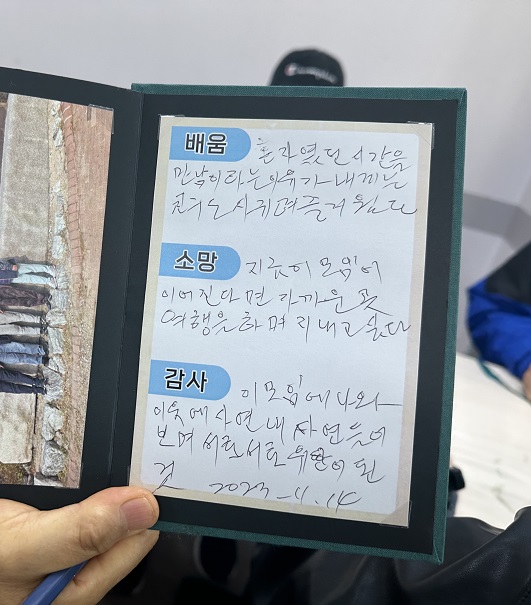 배움
혼자였던 시간을
만남이라는 이유가 내끼는
친구도 사귀며 즐거웠다
소망
지금이 모임이
이어진다면 가까운 곳
여행을 하며 지내고 싶다
감사
이 모임에 나와
이웃에 사연 내 사연을
보며 서로서로 위안이 된
것 2023-11.14